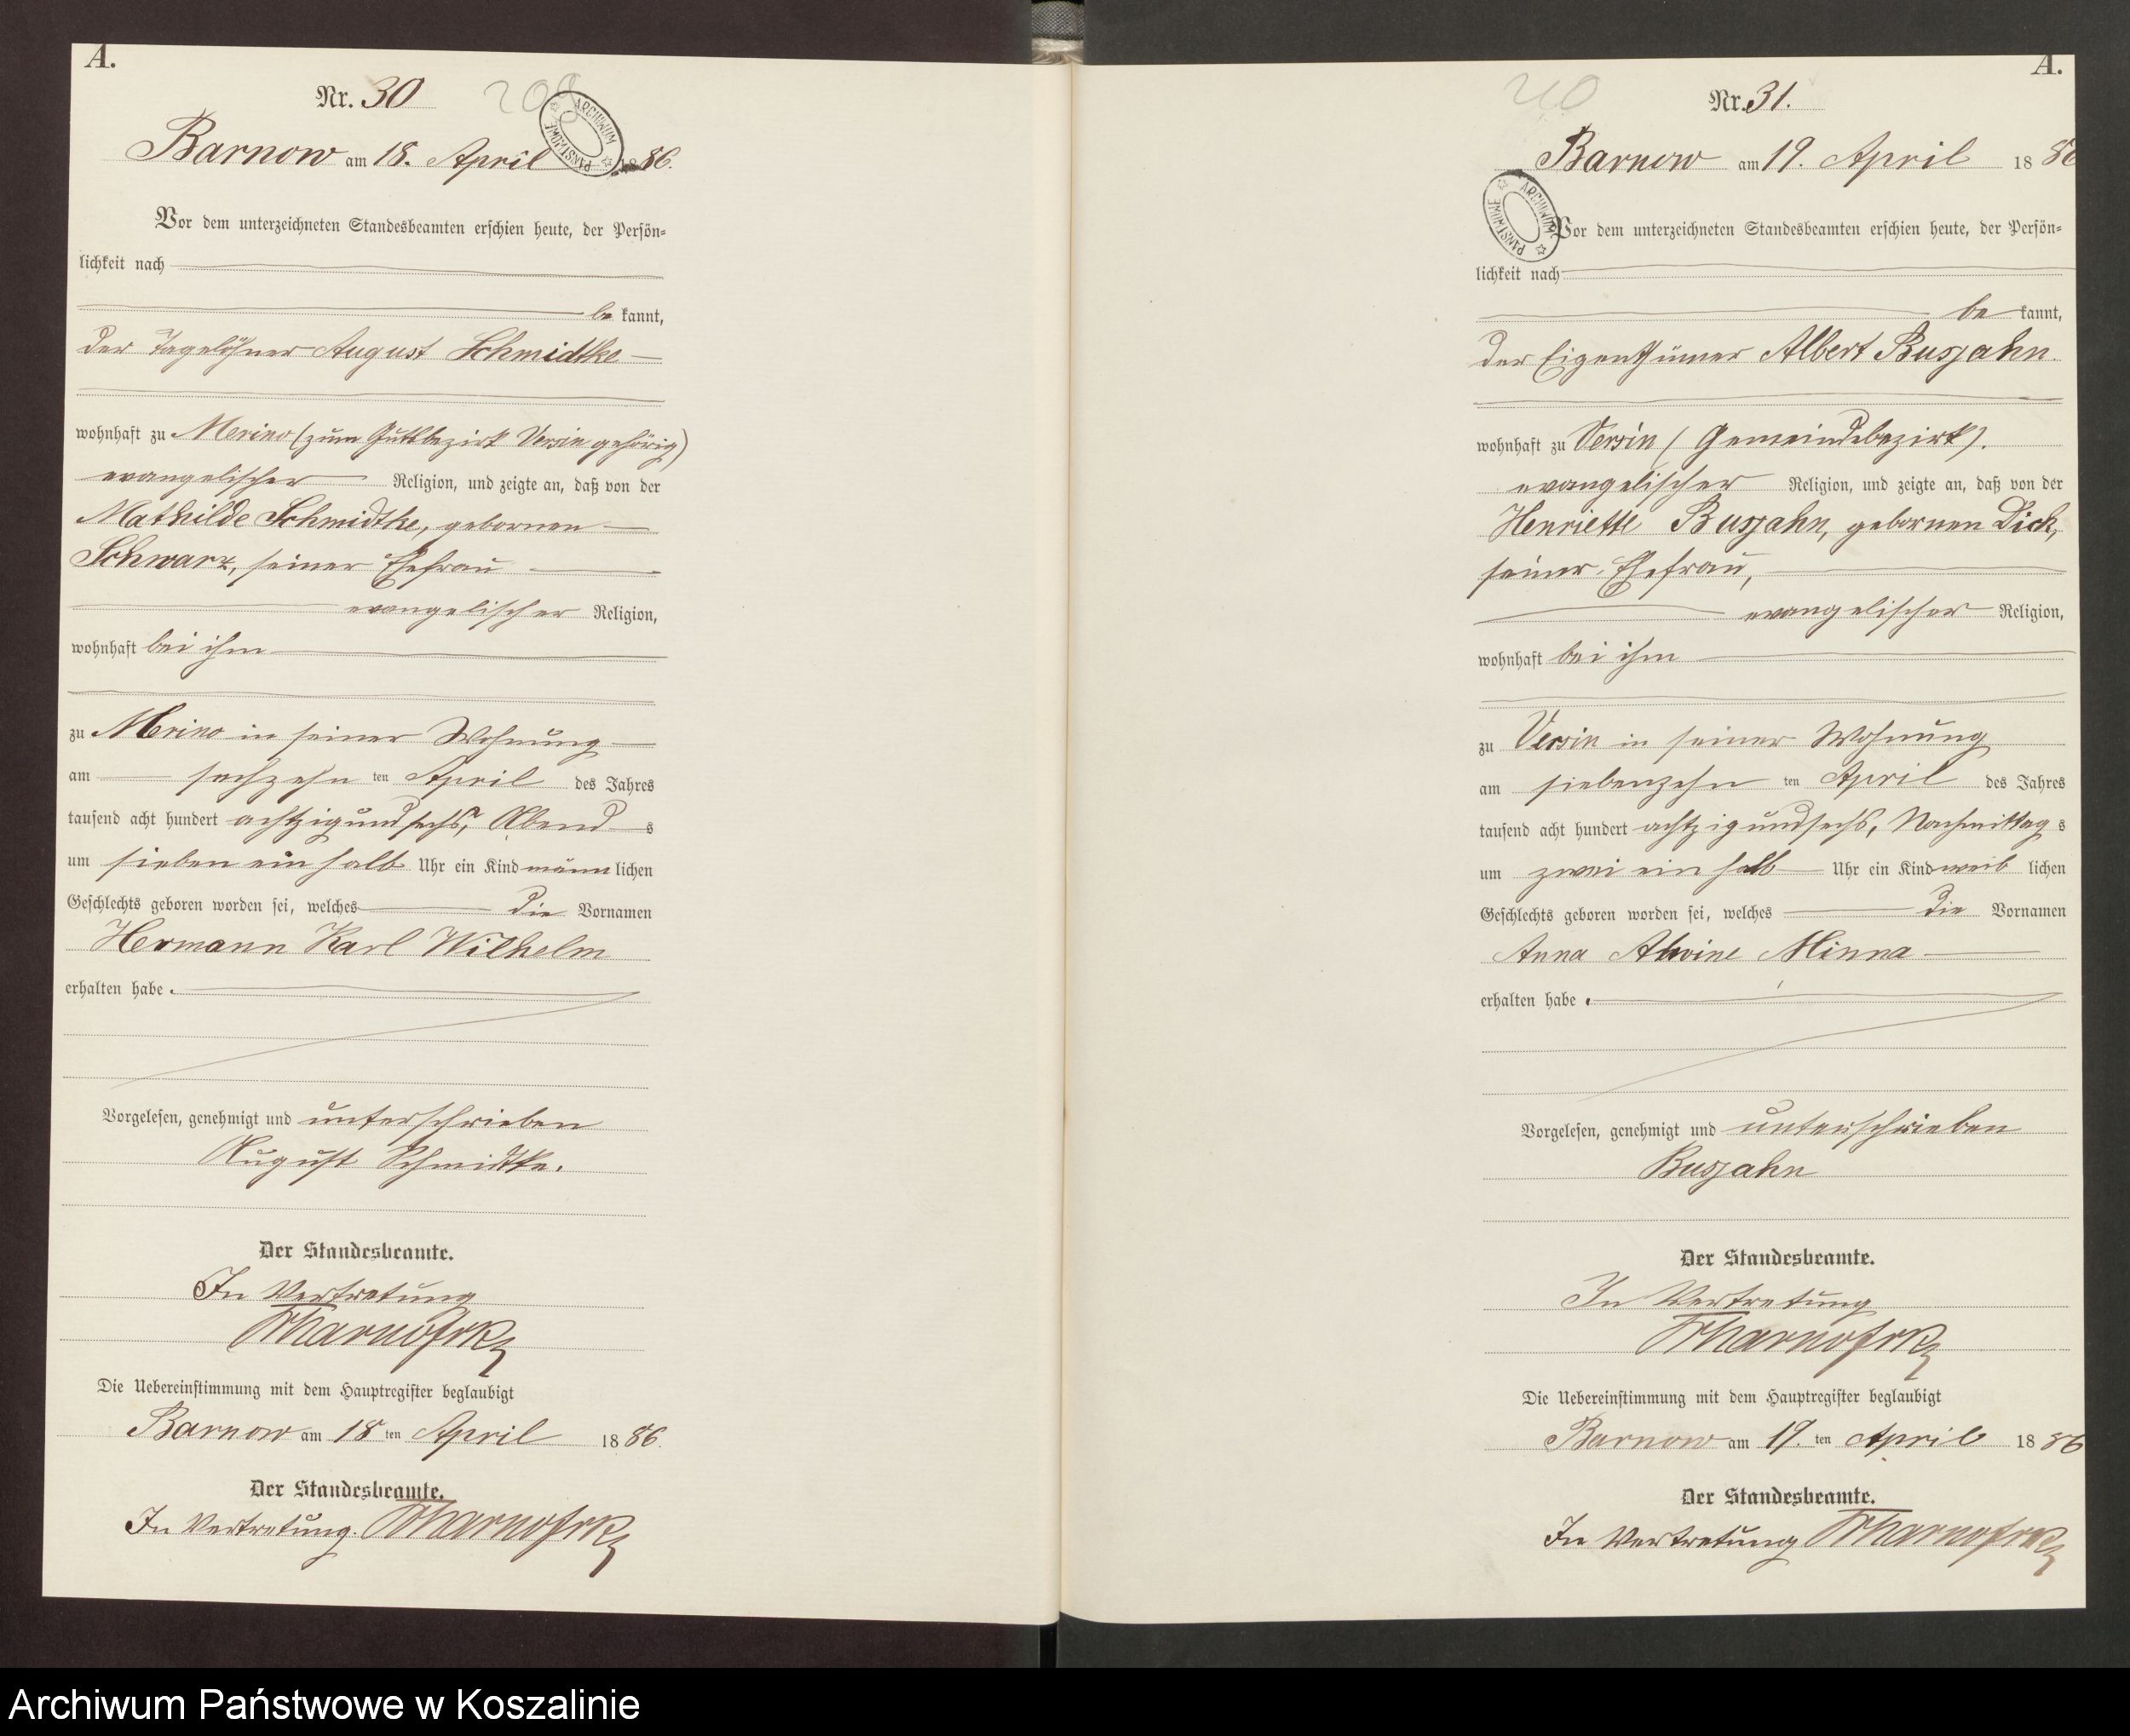 A.
Nr. 30
209
ARCHIWUM PAŃSTWOWE
Barnow am 18. April 1886.
Vor dem unterzeichneten Standesbeamten erschien heute, der Persön=
lichkeit nach
be kannt,
der Tagelöhner August Schmidtke
wohnhaft zu Merino (zum Gutsbezirk Versin gehörig)
evangelischer Religion, und zeigte an, daß von der
Mathilde Schmidtke, gebornen
Schwarz, seiner Ehefrau
evangelischer Religion,
wohnhaft bei ihm
zu Merino in seiner Wohnung
am sechzehn ten April des Jahres
tausend acht hundert achtzigundsechs, Abend s
um sieben ein halb Uhr ein Kind männ lichen
Geschlechts geboren worden sei, welches die Vornamen
Hermann Karl Wilhelm
erhalten habe.
Vorgelesen, genehmigt und unterschrieben
August Schmidtke.
Der Standesbeamte.
In Vertretung
Die Uebereinstimmung mit dem Hauptregister beglaubigt
Barnow am 18 ten April 1886.
Der Standesbeamte.
In Vertretung.
A.
210
Nr. 31.
Barnow am 19. April 1886
ARCHIWUM PAŃSTWOWE
Vor dem unterzeichneten Standesbeamten erschien heute, der Persön=
lichkeit nach
be kannt,
der Eigenthümer Albert Busjahn.
wohnhaft zu Versin (Gemeindebezirk).
evangelischer Religion, und zeigte an, daß von der
Henriette Busjahn, gebornen Dick,
seiner Ehefrau,
evangelischer Religion,
wohnhaft bei ihm
zu Versin in seiner Wohnung
am siebenzehn ten April des Jahres
tausend acht hundert achtzigundsechs, Nachmittag s
um zwei ein halb Uhr ein Kind weib lichen
Geschlechts geboren worden sei, welches die Vornamen
Anna Alwine Minna
erhalten habe.
Vorgelesen, genehmigt und unterschrieben
Busjahn
Der Standesbeamte.
In Vertretung
Die Uebereinstimmung mit dem Hauptregister beglaubigt
Barnow am 19. ten April 1886
Der Standesbeamte.
In Vertretung
Archiwum Państwowe w Koszalinie